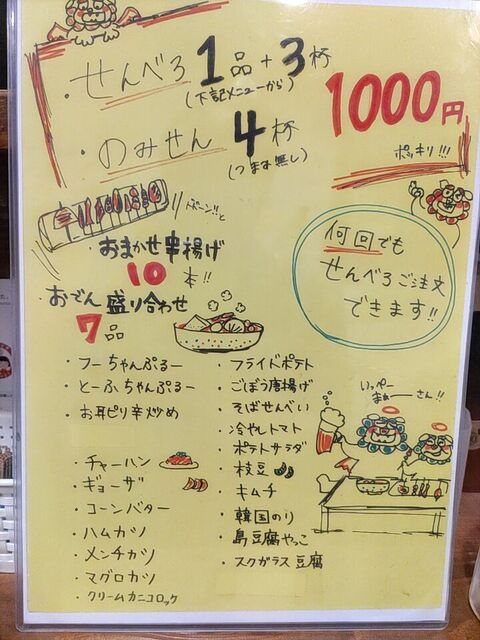 ・せんべろ 1品+3杯
(下記メニューから)
1000円
ポッキリ!!!
・のみせん 4杯
(つまみ無し)
ドドーン!!と
・おまかせ串揚げ
10本!!
・おでん盛り合わせ
7品
何回でも
せんべろご注文
できます!!
・フーちゃんぷるー
・とーふちゃんぷるー
・お耳ピリ辛炒め
・チャーハン
・ギョーザ
・コーンバター
・ハムカツ
・メンチカツ
・マグロカツ
・クリームカニコロック
・フライドポテト
・ごぼう唐揚げ
・そばせんべい
・冷やしトマト
・ポテトサラダ
・枝豆
・キムチ
・韓国のり
・島豆腐やっこ
・スクガラス豆腐
いっぺー
まぁーさん!!